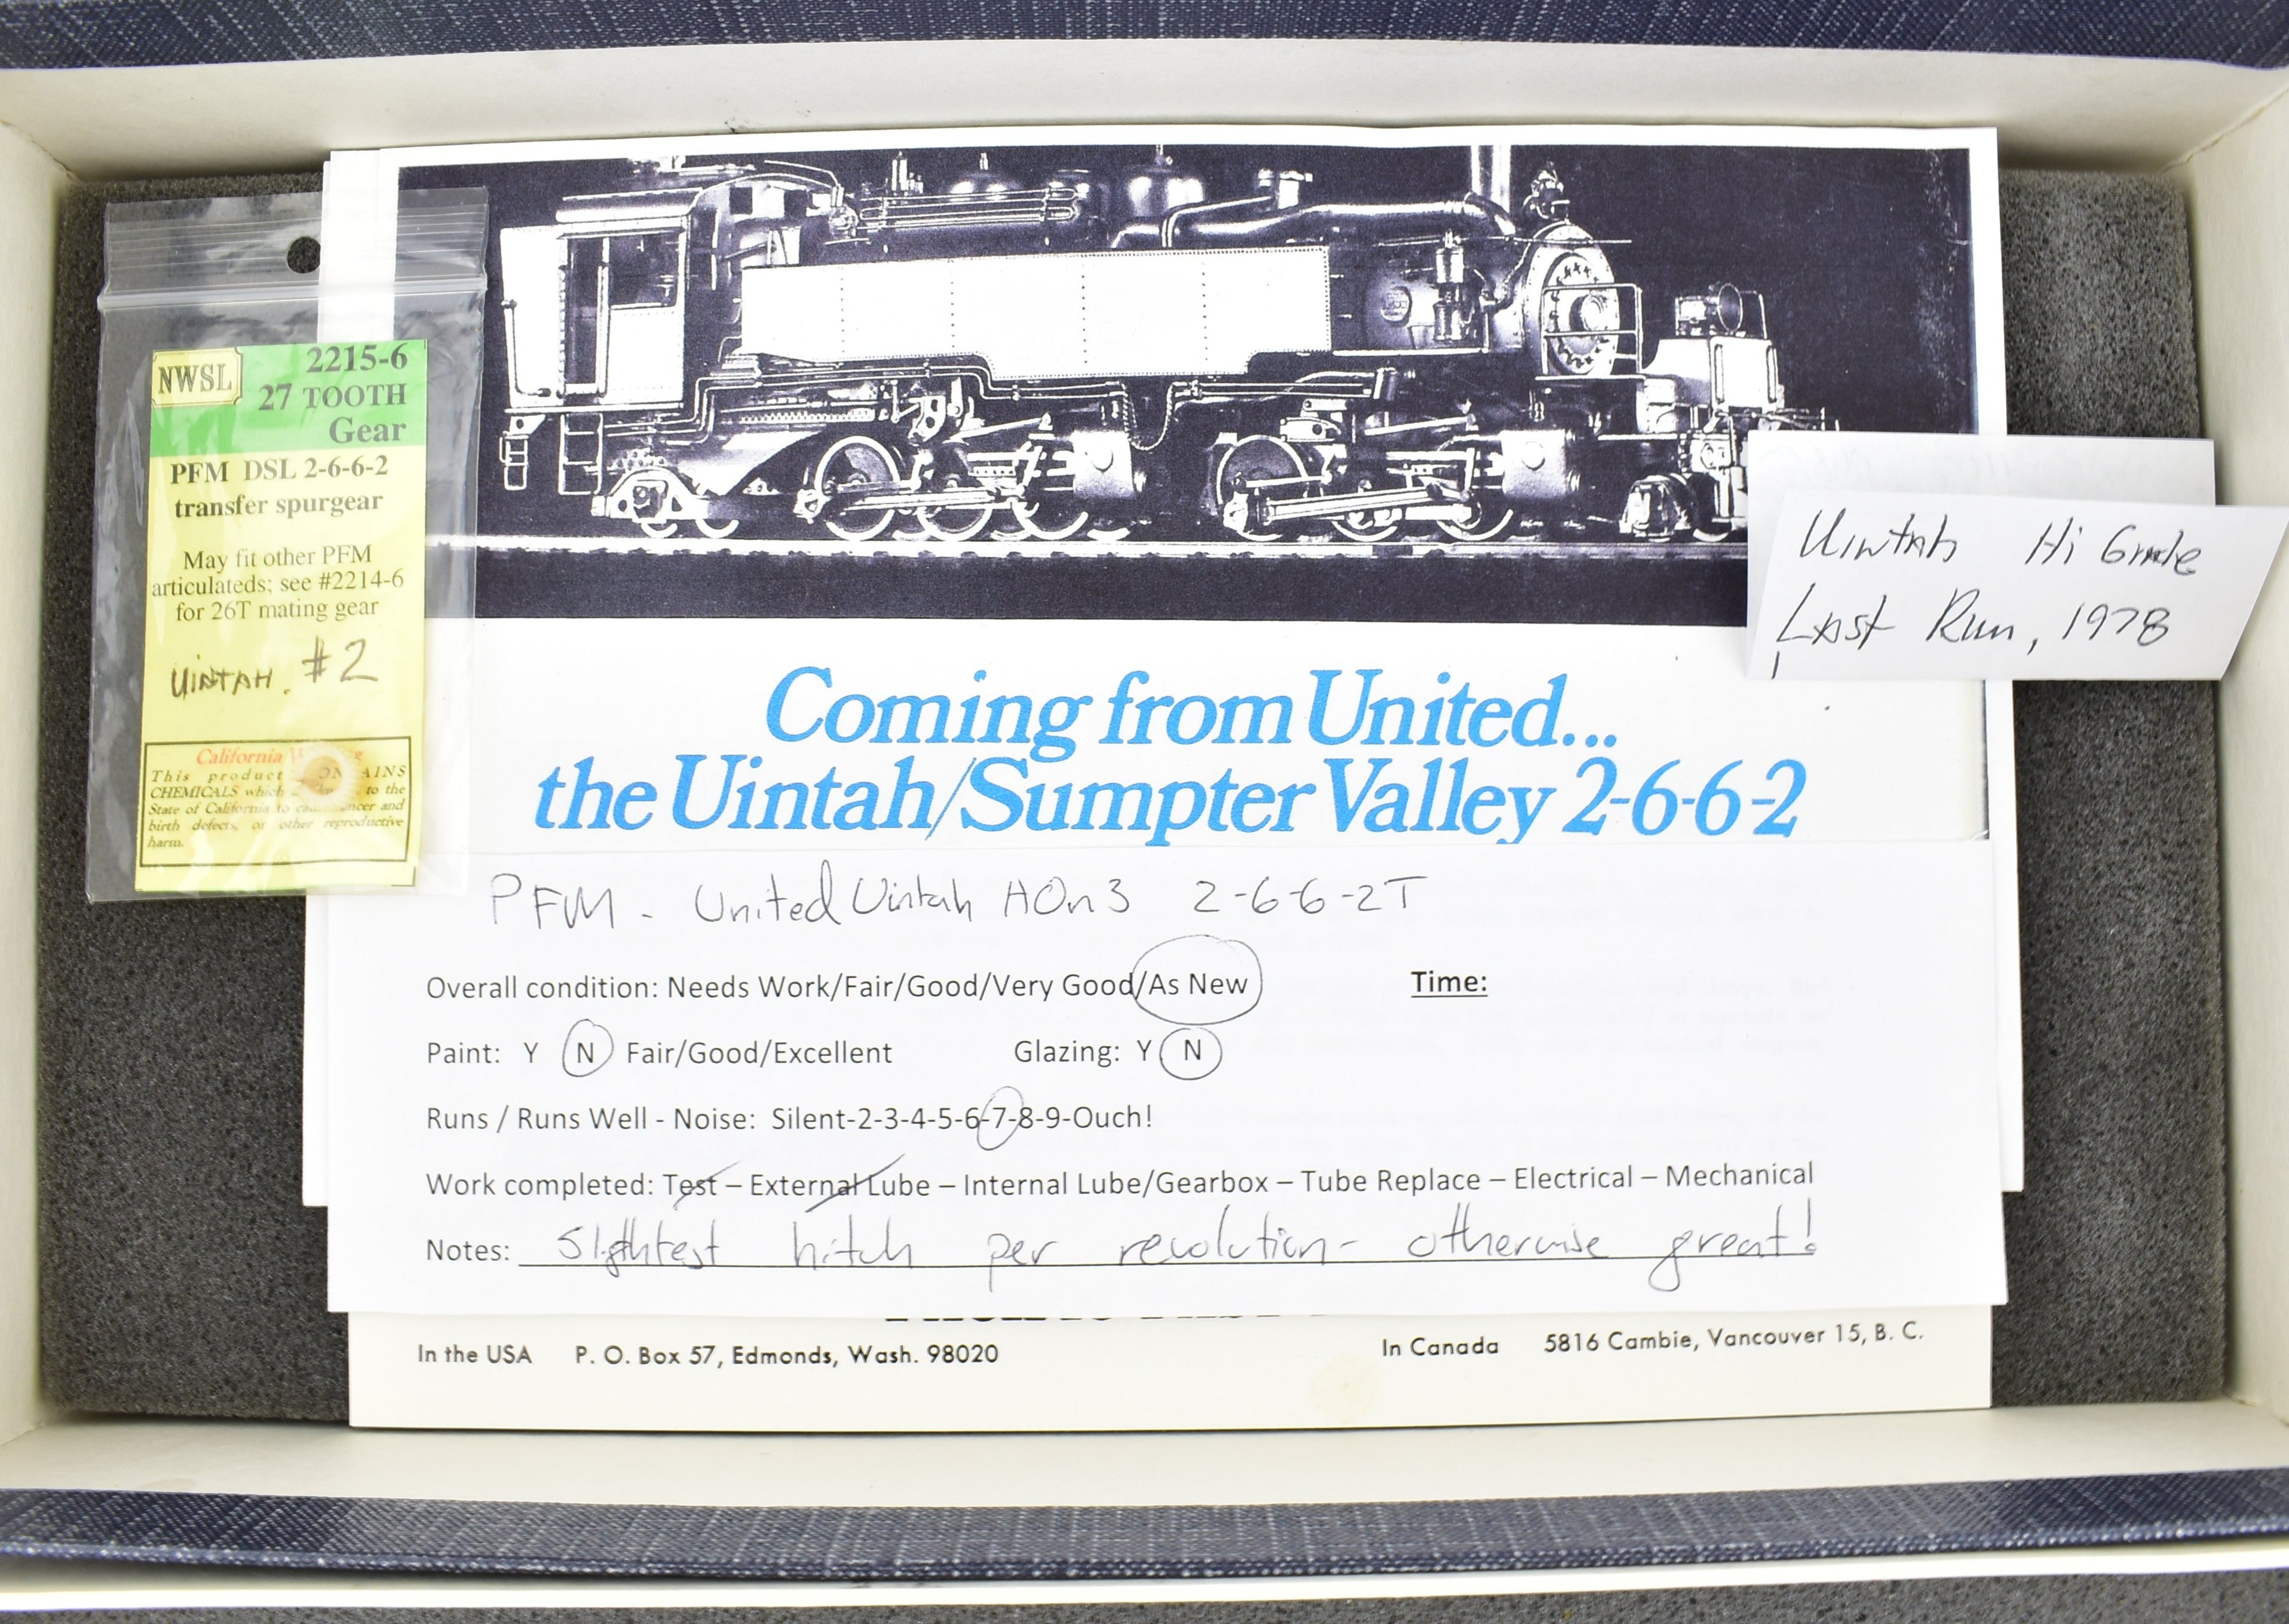 NWSL
2215-6
27 TOOTH
Gear
PFM DSL 2-6-6-2
transfer spurgear
May fit other PFM
articulateds; see #2214-6
for 26T mating gear
UINTAH. #2
California
This product
CHEMICALS which to the
State of California to and
birth defects, or other reproductive
harm.
Uintah Hi Grade
Last Run, 1978
Coming from United...
the Uintah/Sumpter Valley 2-6-6-2
PFM - United Uintah HOn3 2-6-6-2T
Overall condition: Needs Work/Fair/Good/Very Good/As New Time:
Paint: Y N Fair/Good/Excellent Glazing: Y N
Runs / Runs Well - Noise: Silent-2-3-4-5-6-7-8-9-Ouch!
Work completed: Test – External Lube – Internal Lube/Gearbox – Tube Replace – Electrical – Mechanical
Notes: Slightest hitch per revolution - otherwise great!
In the USA P. O. Box 57, Edmonds, Wash. 98020
In Canada 5816 Cambie, Vancouver 15, B. C.